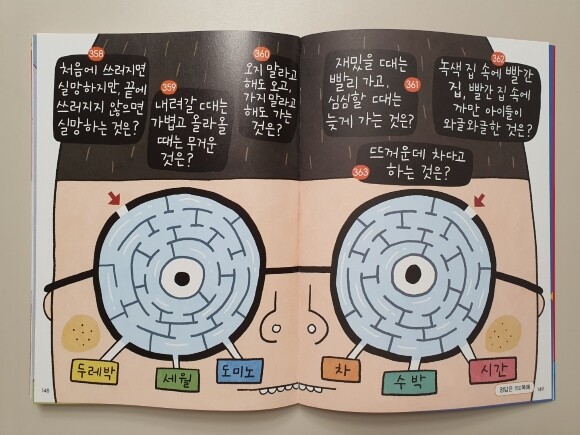 358
처음에 쓰러지면
실망하지만 끝에
쓰러지지 않으면
실망하는 것은?
359
내려갈 때는
가볍고 올라올
때는 무거운
것은?
360
오지 말라고
해도 오고,
가지 말라고
해도 가는
것은?
재밌을 때는
빨리 가고,
심심할 때는
늦게 가는 것은?
361
362
녹색 집 속에 빨간
집, 빨간 집 속에
까만 아이들이
와글와글한 것은?
뜨거운데 차다고
하는 것은?
363
두레박
세월
도미노
차
수박
시간
148
149